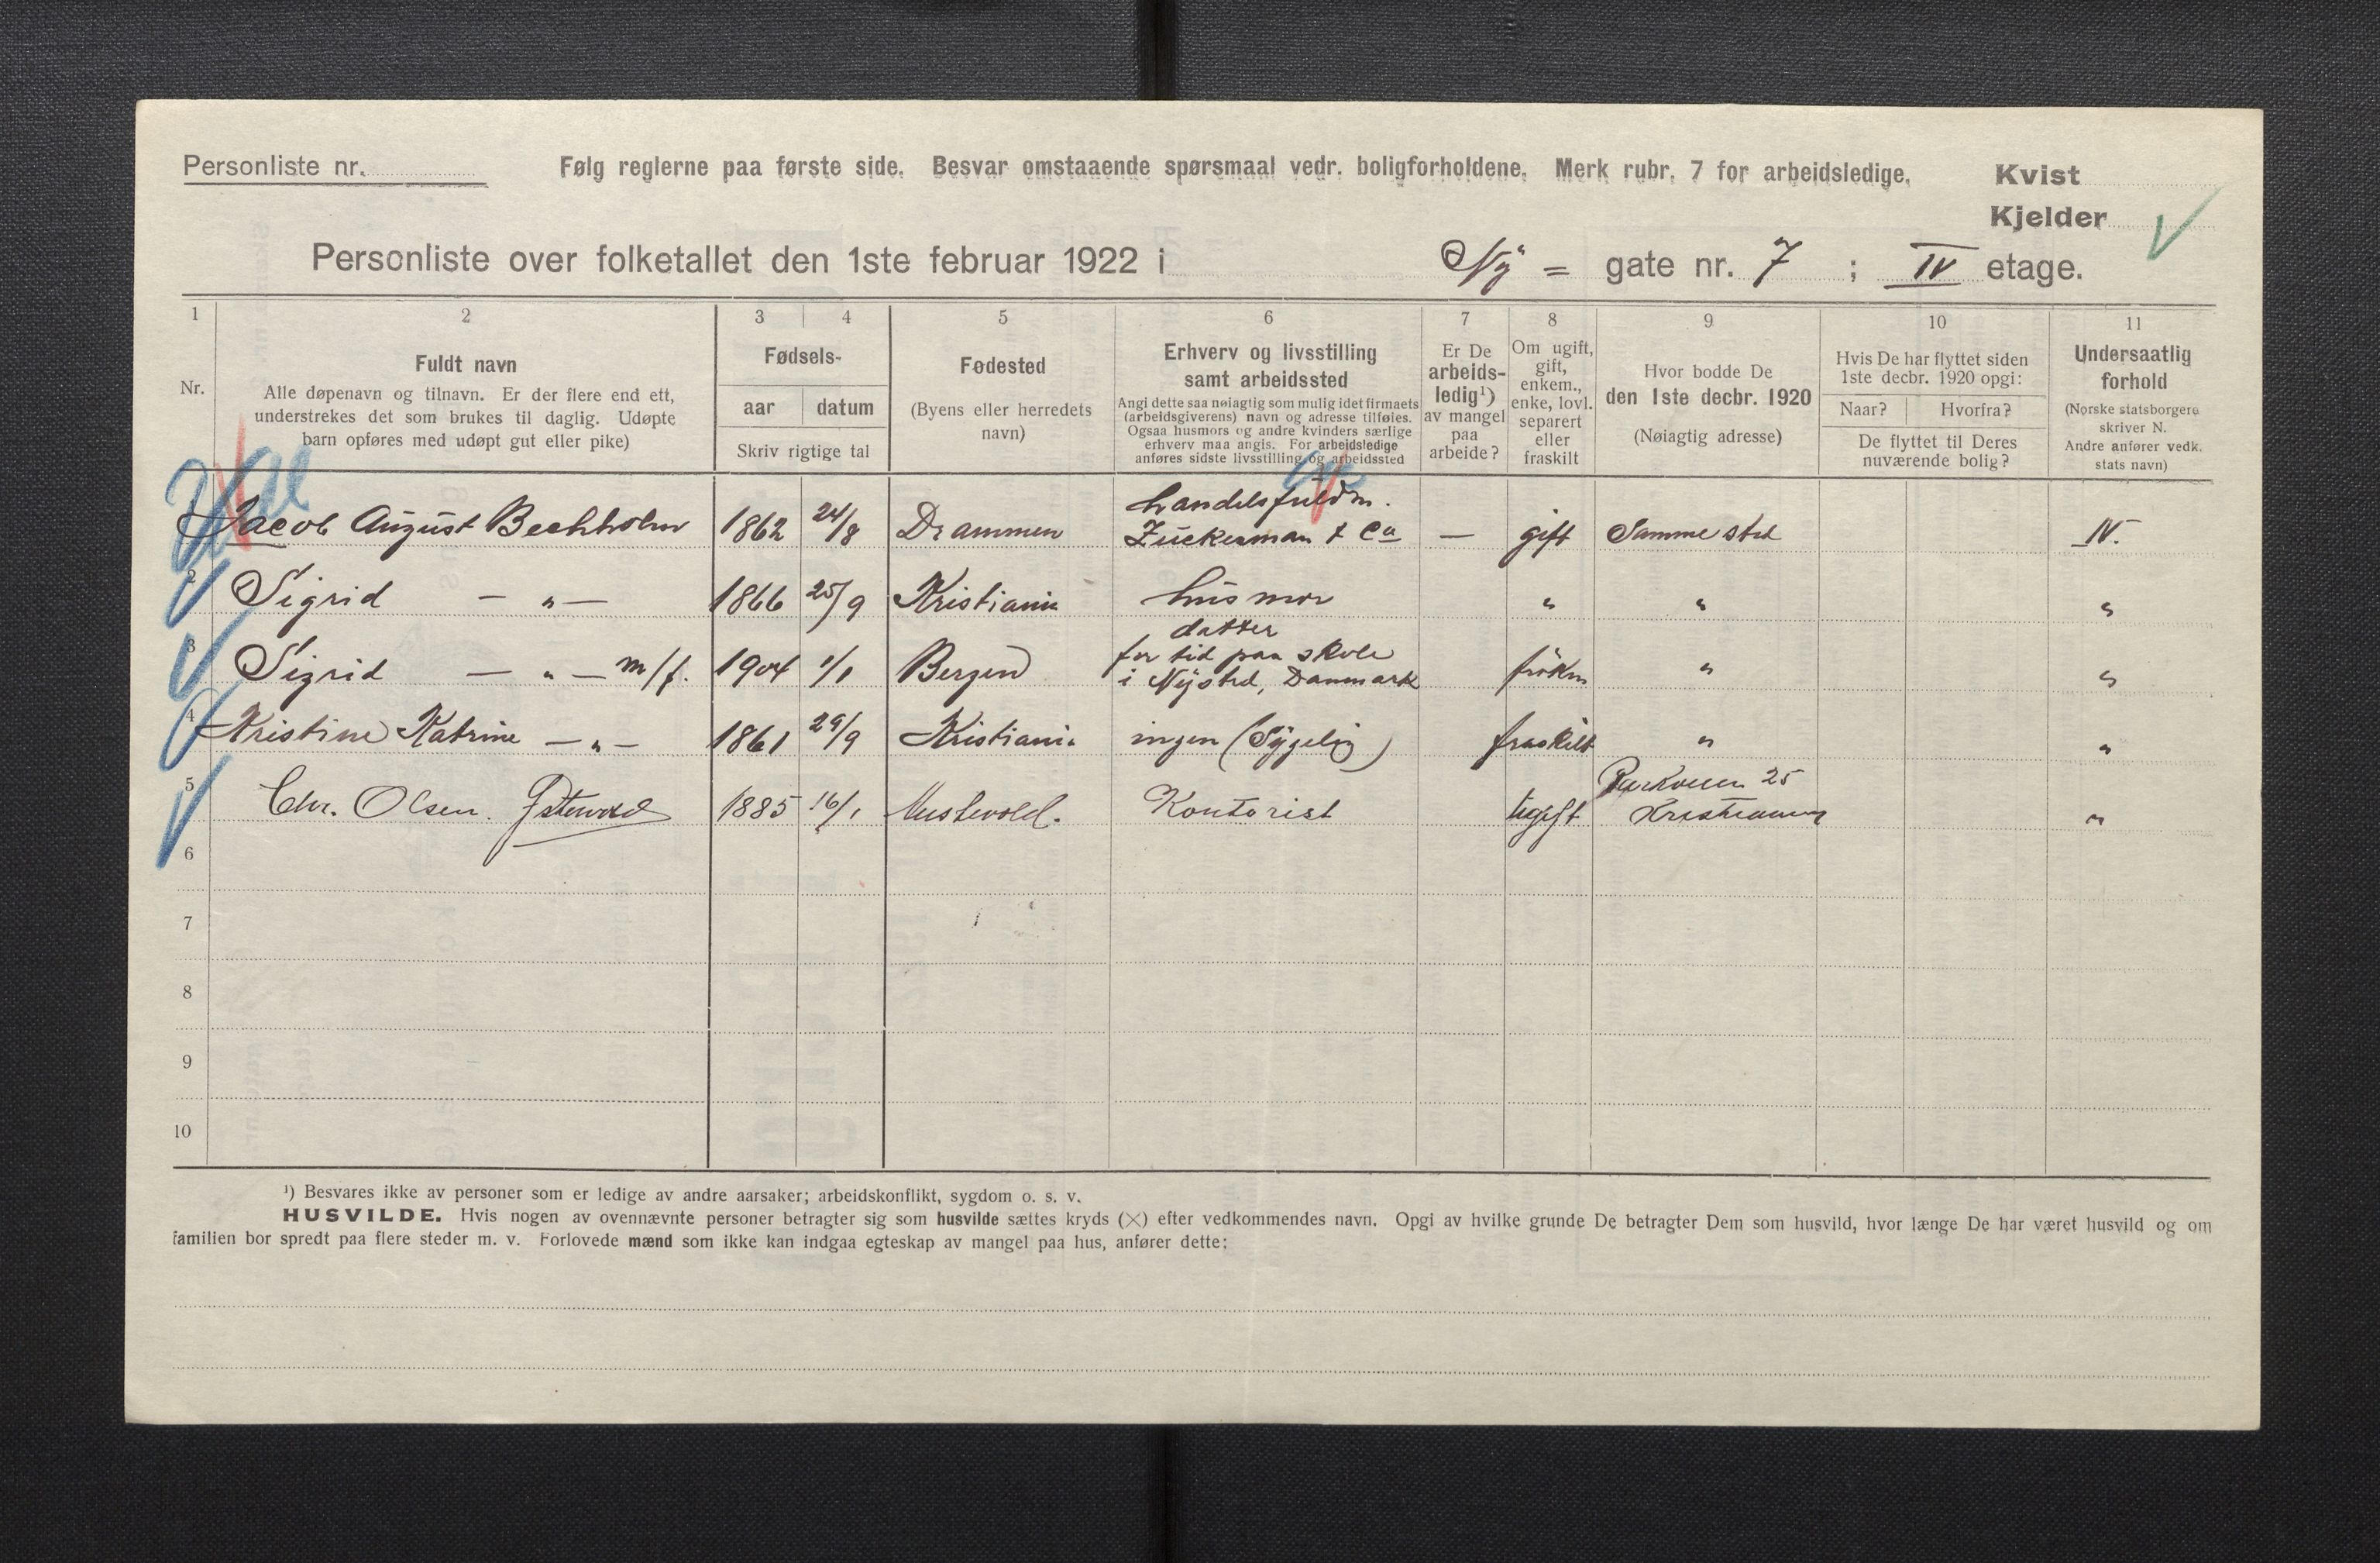 Personliste nr.
Følg reglerne paa første side. Besvar omstaaende spørsmaal vedr. boligforholdene. Merk rubr. 7 for arbeidsledige.
Kvist
Kjelder
Personliste over folketallet den 1ste februar 1922 i Ny = gate nr. 7 ; IV etage.
1 2 3 4 5 6 7 8 9 10 11
Nr.
Fuldt navn
Alle døpenavn og tilnavn. Er der flere end ett,
understrekes det som brukes til daglig. Udøpte
barn opføres med udøpt gut eller pike)
Fødsels-
aar datum
Skriv rigtige tal
Fødested
(Byens eller herredets
navn)
Erhverv og livsstilling
samt arbeidssted
Angi dette saa nøiagtig som mulig idet firmaets
(arbeidsgiverens) navn og adresse tilføies.
Ogsaa husmors og andre kvinders særlige
erhverv maa angis. For arbeidsledige
anføres sidste livsstilling og arbeidssted
Er De
arbeids-
ledig¹)
av mangel
paa
arbeide?
Om ugift,
gift,
enkem.,
enke, lovl.
separert
eller
fraskilt
Hvor bodde De
den 1ste decbr. 1920
(Nøiagtig adresse)
Hvis De har flyttet siden
1ste decbr. 1920 opgi:
Naar? Hvorfra?
De flyttet til Deres
nuværende bolig?
Undersaatlig
forhold
(Norske statsborgere
skriver N.
Andre anfører vedk.
stats navn)
handelsfuldm.
Jacob August Bechholm 1862 24/8 Drammen Zuckerman & Co — gift Samme sted N.
2 Sigrid — „ — 1866 25/9 Kristiania husmor „ „ „
datter
for tid paa skole
3 Sigrid — „ — m/f. 1904 1/1 Bergen i Nysted, Danmark frøken „ „
4 Kristine Katrine — „ — 1861 29/9 Kristiania ingen (Sygelig) fraskilt „ „
Parkveien 25
5 Chr. Olsen 1885 16/1 Kontorist Ugift Kristiania „
6
7
8
9
10
¹) Besvares ikke av personer som er ledige av andre aarsaker; arbeidskonflikt, sygdom o. s. v.
HUSVILDE. Hvis nogen av ovennævnte personer betragter sig som husvilde sættes kryds (×) efter vedkommendes navn. Opgi av hvilke grunde De betragter Dem som husvild, hvor længe De har været husvild og om
familien bor spredt paa flere steder m. v. Forlovede mænd som ikke kan indgaa egteskap av mangel paa hus, anfører dette: